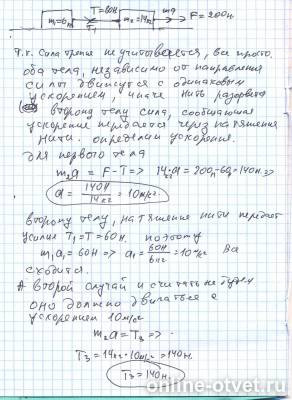 m₁=6кг T=60Н T₁ m₂=14кг m₂ F=200н
Т.к. Сила трения не учитывается, все просто
оба тела, независимо от направления
силы движутся с одинаковым
ускорением, иначе нить разорвётся
второму телу сила, сообщающая
ускорение передаётся через натяжение
нити. определим ускорение.
для первого тела
m₂a = F - T => 14·a = 200н-60=140н =>
a = 140Н/14кг = 10м/с²
второму телу, натяжение нити передаёт
усилия T₁=T=60н. поэтому
m₁a₁=60Н => a₁ = 60н/6кг = 10м/с² Все
сходится.
А второй случай и считать не будем
оно должно двигаться с
ускорением 10м/с²
m₂a = T₃ =>
T₃ = 14кг·10м/с² = 140н.
T₃ = 140н
online-otvet.ru